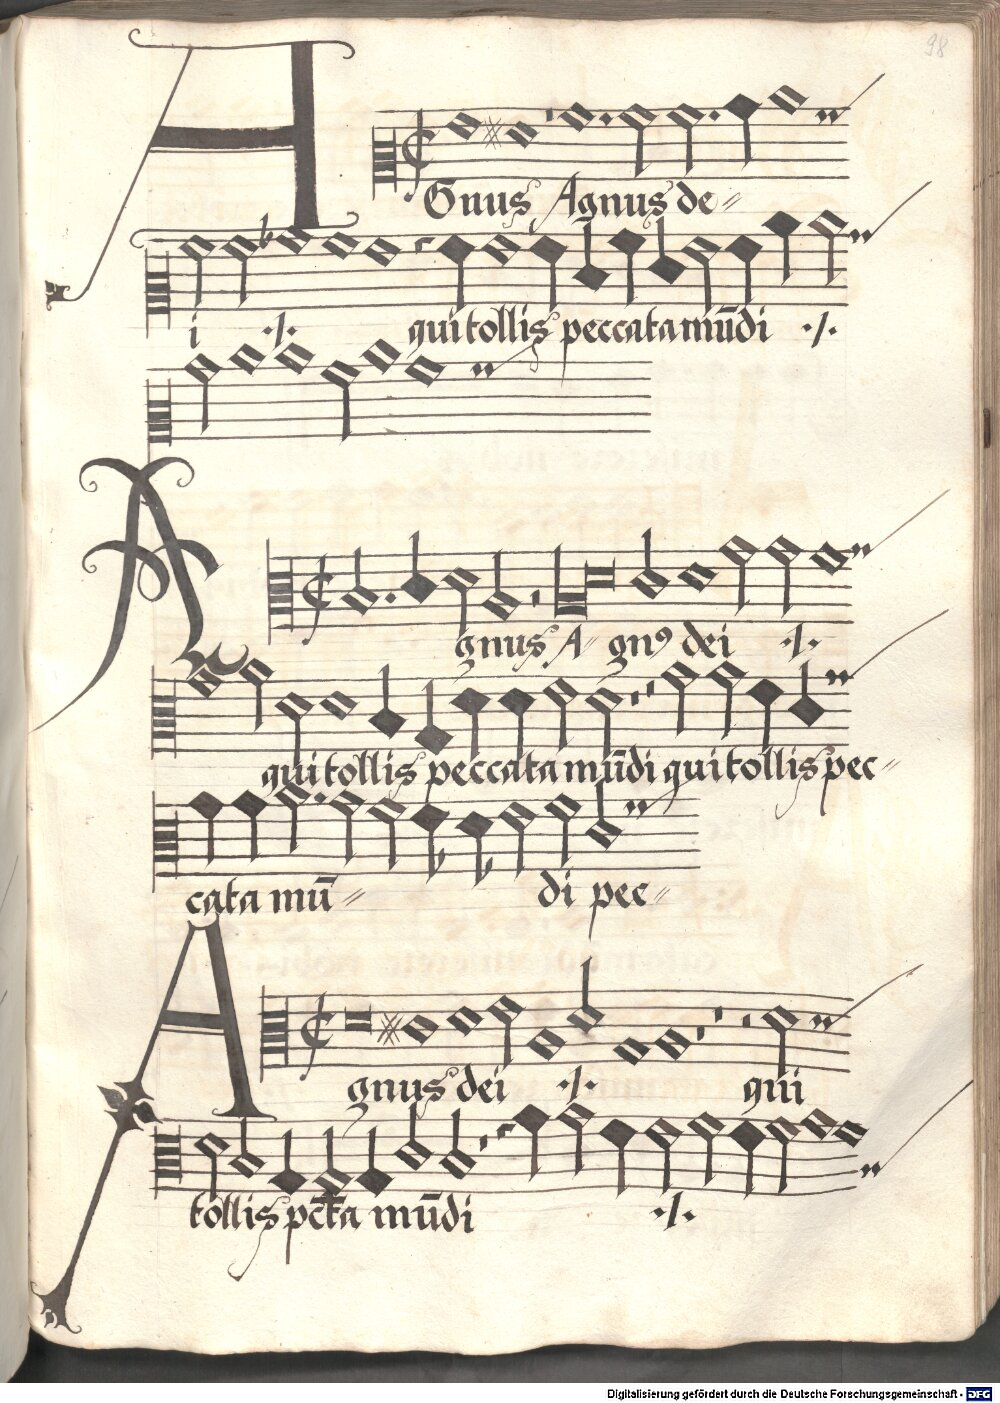 98
AGnus Agnus de〃
i ·/. qui tollis peccata mūdi ·/.
Agnus A〃 gnꝰ dei ·/.
qui tollis peccata mūdi qui tollis pec〃
cata mū〃 di pec〃
Agnus dei ·/. qui
tollis pctā mūdi ·/.
Digitalisierung gefördert durch die Deutsche Forschungsgemeinschaft - DFG